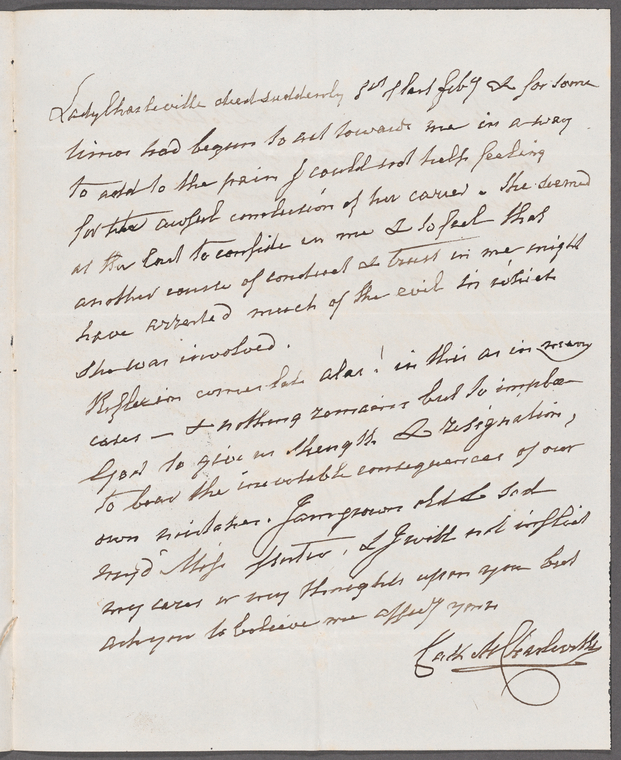 Lady Charleville died suddenly 3rd of last Feby & for some
times had begun to act towards me in a way
to add to the pain I could not help feeling
for the awful conclusion of her career - She seemed
at the last to confide in me & to feel that
another course of conduct & trust in me might
have arrested much of the evil in which
She was involved.
Reflexion comes late alas! in this as in many
cases — & nothing remains but to implore
God to give us strength & resignation,
to bear the inevitable consequences of our
own mistakes. I am grown old & sad
my dr Miss Porter, & I will not inflict
my cares or my thoughts upon you but
ask you to believe me affecy yours
Cath M Charleville